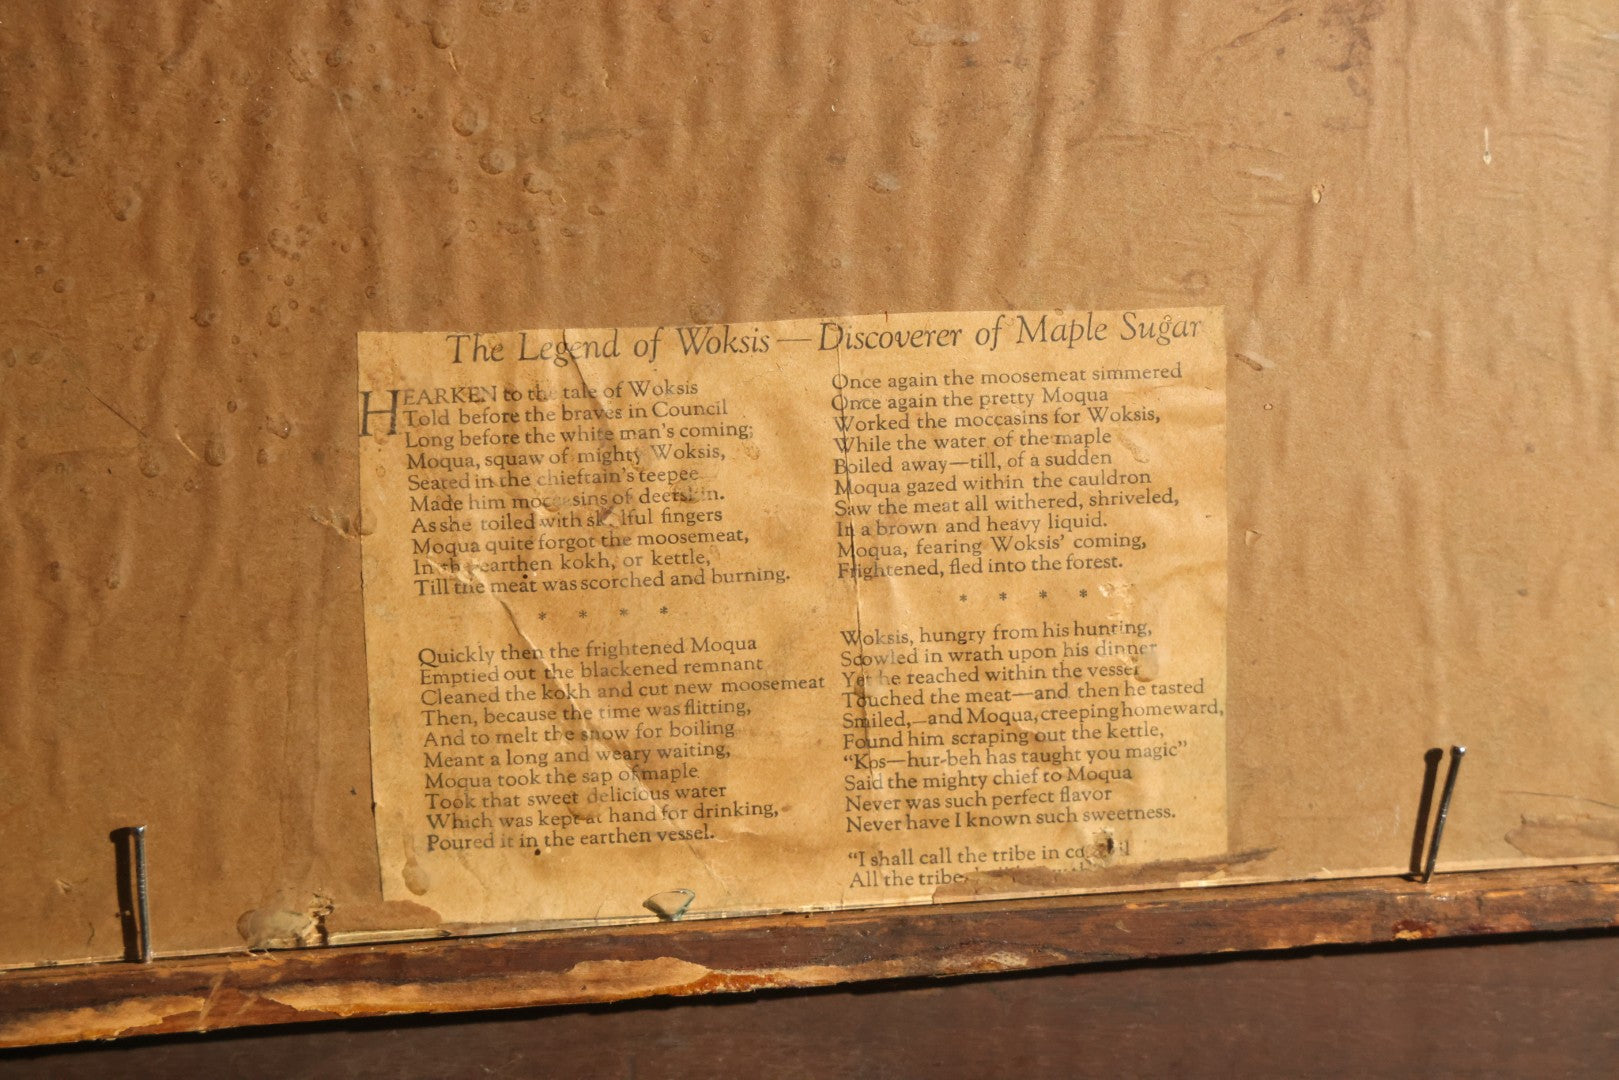 The Legend of Woksis — Discoverer of Maple Sugar
HEARKEN to the tale of Woksis
Told before the braves in Council
Long before the white man's coming;
Moqua, squaw of mighty Woksis,
Seated in the chieftain's teepee
Made him moccasins of deerskin.
As she toiled with skilful fingers
Moqua quite forgot the moosemeat,
In the earthen kokh, or kettle,
Till the meat was scorched and burning.
* * * *
Quickly then the frightened Moqua
Emptied out the blackened remnant
Cleaned the kokh and cut new moosemeat
Then, because the time was flitting,
And to melt the snow for boiling
Meant a long and weary waiting,
Moqua took the sap of maple
Took that sweet delicious water
Which was kept at hand for drinking,
Poured it in the earthen vessel.
Once again the moosemeat simmered
Once again the pretty Moqua
Worked the moccasins for Woksis,
While the water of the maple
Boiled away—till, of a sudden
Moqua gazed within the cauldron
Saw the meat all withered, shriveled,
In a brown and heavy liquid.
Moqua, fearing Woksis' coming,
Frightened, fled into the forest.
* * * *
Woksis, hungry from his hunting,
Scowled in wrath upon his dinner
Yet he reached within the vessel
Touched the meat—and then he tasted
Smiled,—and Moqua, creeping homeward,
Found him scraping out the kettle,
"Kos—hur-beh has taught you magic"
Said the mighty chief to Moqua
Never was such perfect flavor
Never have I known such sweetness.
"I shall call the tribe in council
All the tribe